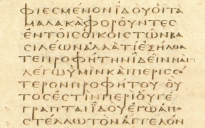 ΦΙΕϹΜΕΝΟΝΙΔΟΥΟΙΤΑ
ΜΑΛΑΚΑΦΟΡΟΥΝΤΕϹ
ΕΝΤΟΙϹΟΙΚΟΙϹΤΩΝΒΑ
ϹΙΛΕΩΝΑΛΛΑΤΙΕΞΗΛΘΑ
ΤΕΠΡΟΦΗΤΗΝΙΔΕΙΝΝΑΙ
ΛΕΓΩΥΜΙΝΚΑΙΠΕΡΙϹϹΟ
ΤΕΡΟΝΠΡΟΦΗΤΟΥΟΥ
ΤΟϹΕϹΤΙΝΠΕΡΙΟΥΓΕ
ΓΡΑΠΤΑΙΙΔΟΥΕΓΩΑΠΟ
ϹΤΕΛΛΩΤΟΝΑΓΓΕΛΟΝ